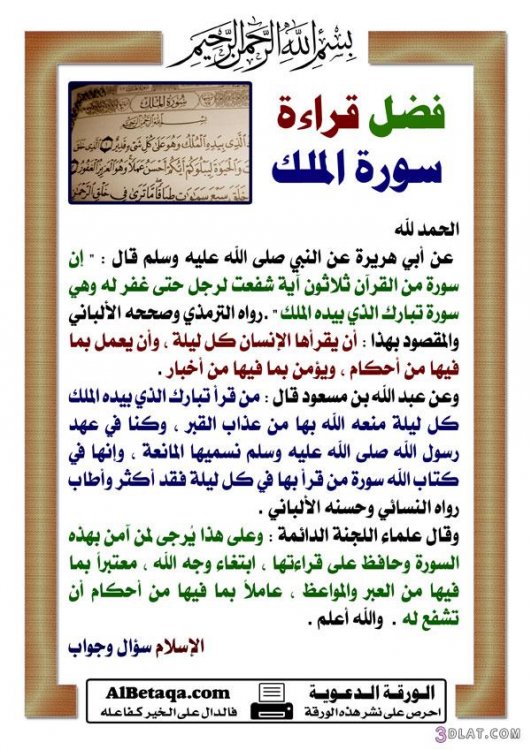 بسم الله الرحمن الرحيم
فضل قراءة
سورة الملك
سورة الملك
الحمد لله
عن أبي هريرة عن النبي صلى الله عليه وسلم قال : " إن
سورة من القرآن ثلاثون آية شفعت لرجل حتى غفر له وهي
سورة تبارك الذي بيده الملك" .رواه الترمذي وصححه الألباني
والمقصود بهذا : أن يقرأها الإنسان كل ليلة ، وأن يعمل بما
فيها من أحكام ، ويؤمن بما فيها من أخبار .
وعن عبد الله بن مسعود قال : من قرأ تبارك الذي بيده الملك
كل ليلة منعه الله بها من عذاب القبر ، وكنا في عهد
رسول الله صلى الله عليه وسلم نسميها المانعة ، وإنها في
كتاب الله سورة من قرأ بها في كل ليلة فقد أكثر وأطاب
رواه النسائي وحسنه الألباني .
وقال علماء اللجنة الدائمة : وعلى هذا يُرجى لمن آمن بهذه
السورة وحافظ على قراءتها ، ابتغاء وجه الله ، معتبراً بما
فيها من العبر والمواعظ ، عاملاً بما فيها من أحكام أن
تشفع له . والله أعلم .
الإسلام سؤال وجواب
الورقة الدعوية
احرص على نشر هذه الورقة
AlBetaqa.com
فالدال على الخير كفاعله
3DLAT.COM